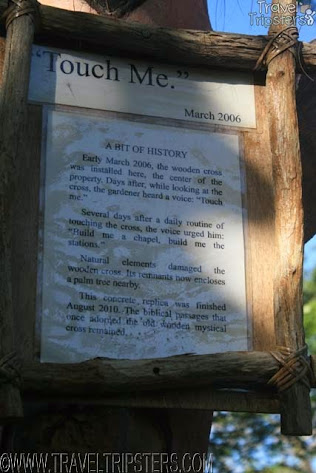 Travel
Tripsters
"Touch Me."
March 2006
A BIT OF HISTORY
Early March 2006, the wooden cross
was installed here, the center of the
property. Days after, while looking at the
cross, the gardener heard a voice: "Touch
me."
Several days after a daily routine of
touching the cross, the voice urged him:
"Build me a chapel, build me the
stations."
Natural elements damaged the
wooden cross. Its remnants now encloses
a palm tree nearby.
This concrete replica was finished
August 2010. The biblical passages that
once adopted the old wooden mystical
cross remained.
©WWW.TRAVELTRIPSTERS.COM